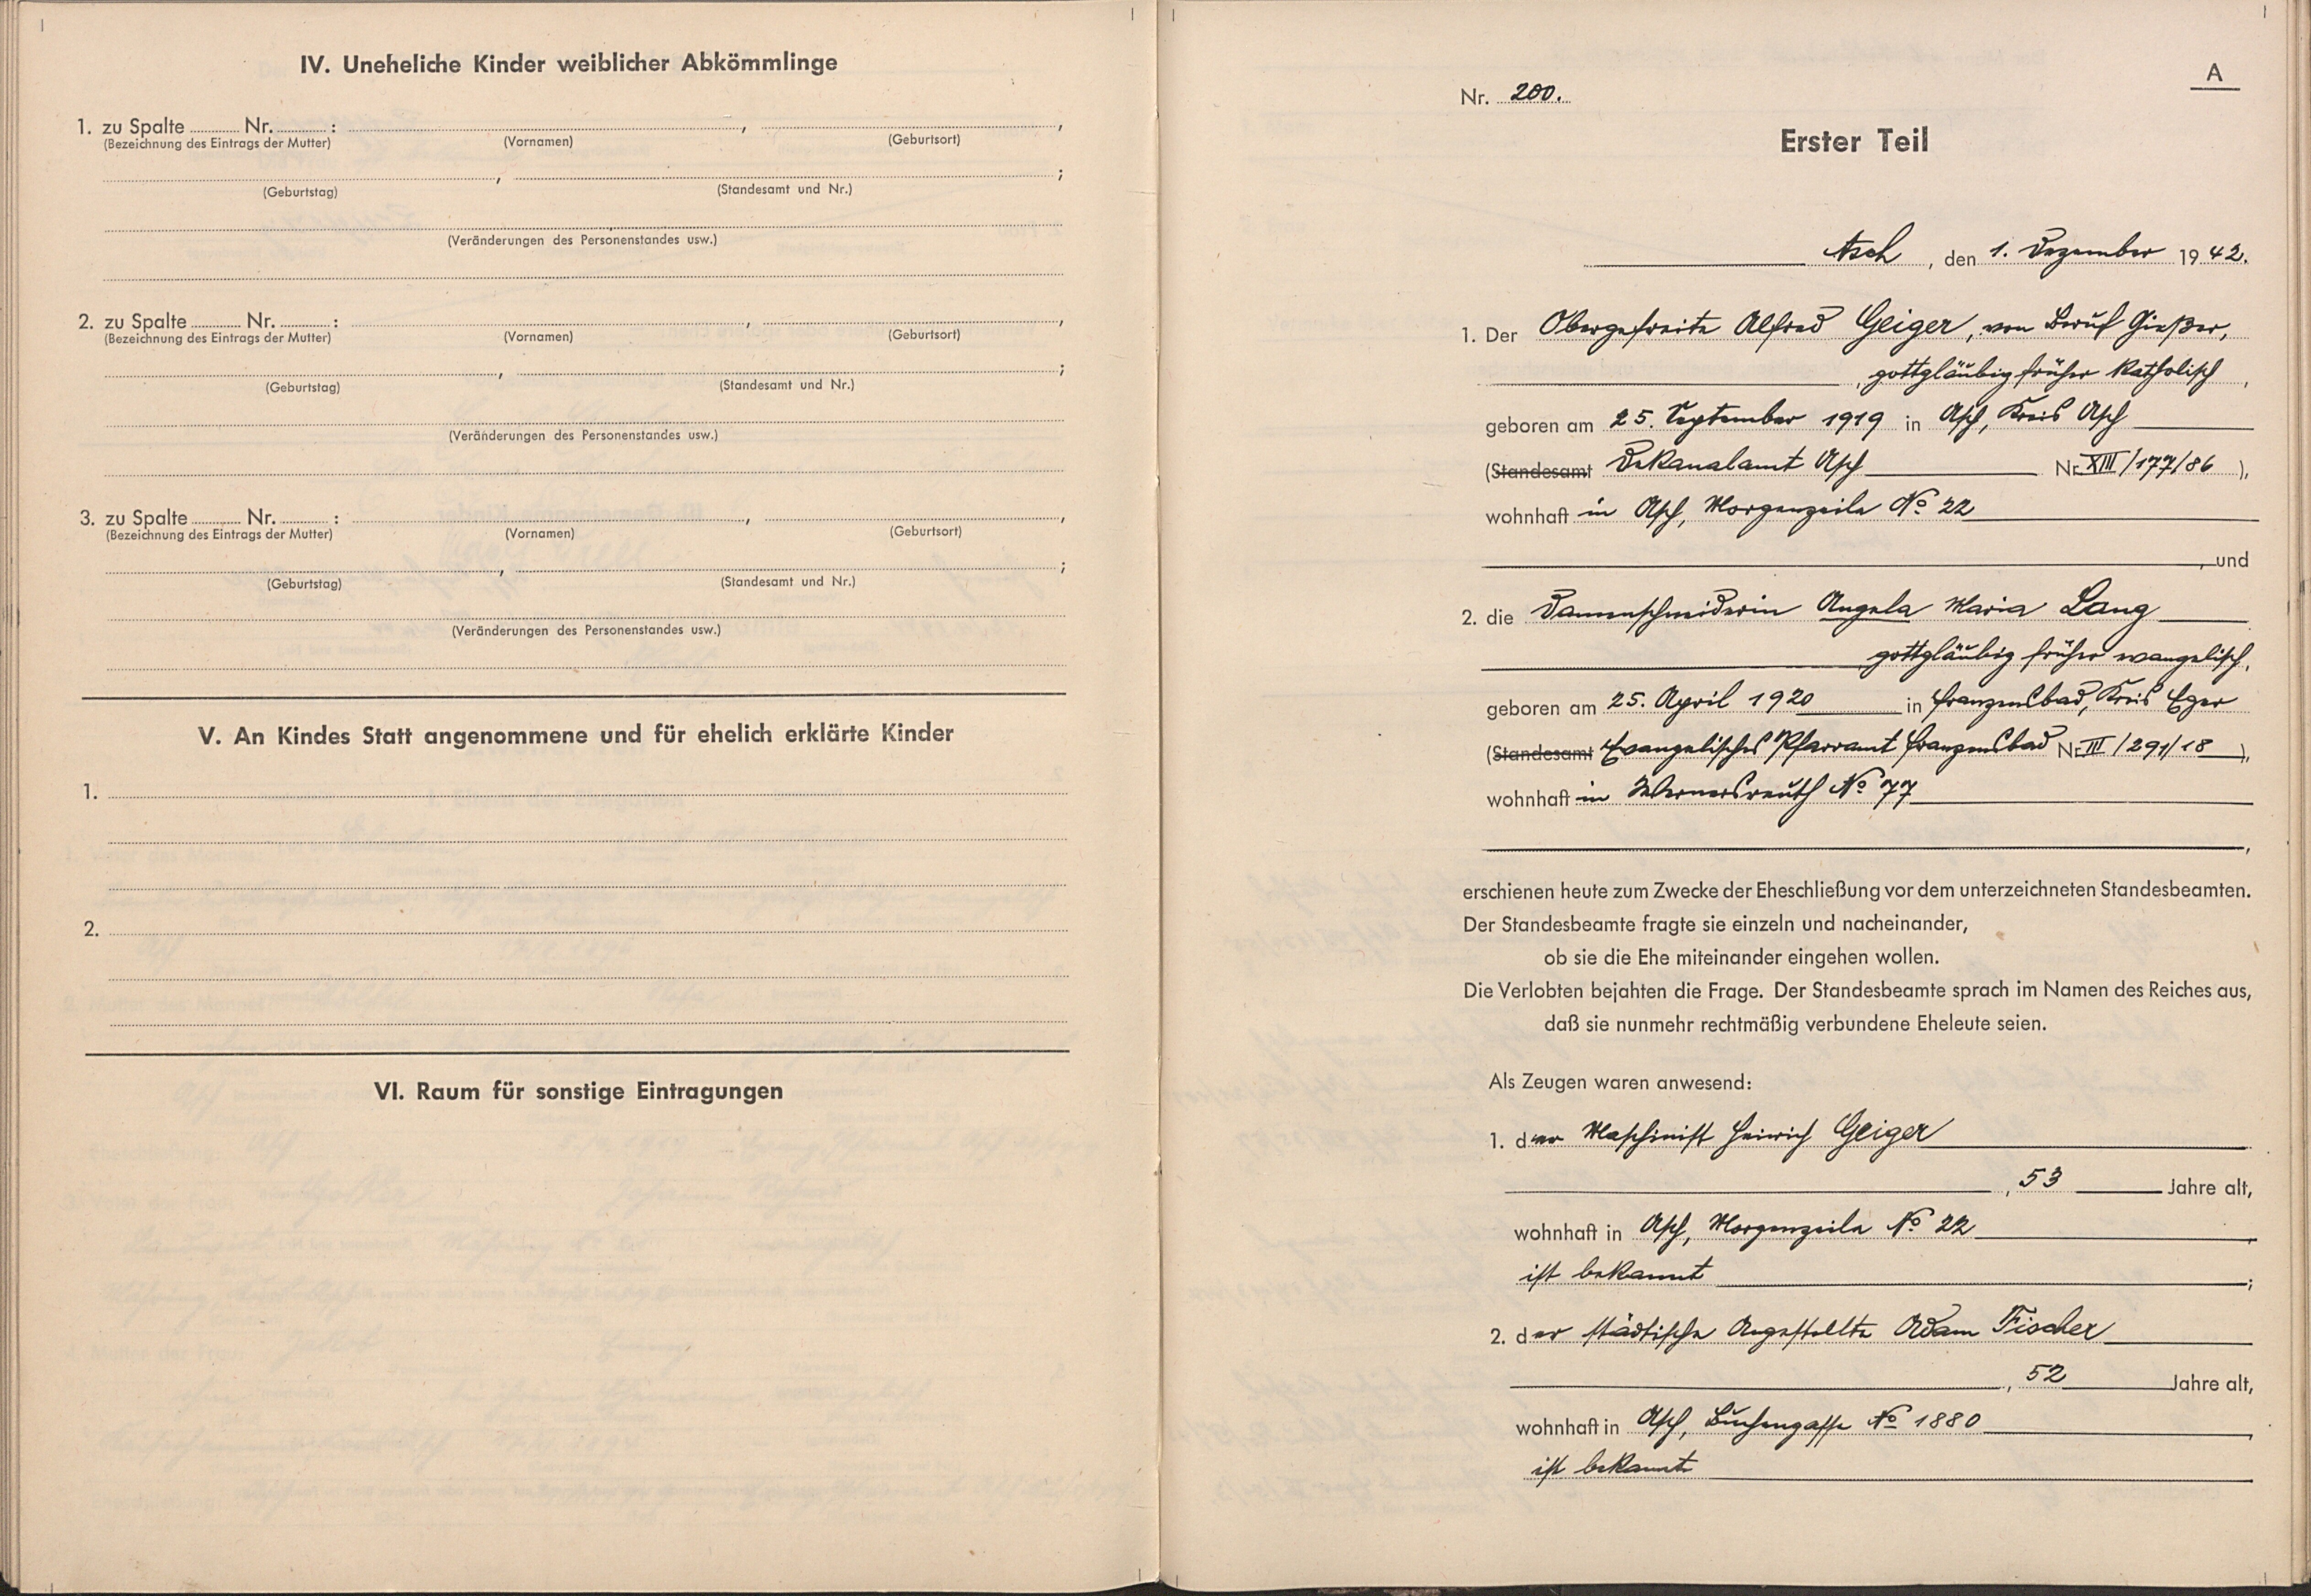 IV. Uneheliche Kinder weiblicher Abkömmlinge
1. zu Spalte ........ Nr. ........ : ........, ........,
(Bezeichnung des Eintrags der Mutter) (Vornamen) (Geburtsort)
(Geburtstag) (Standesamt und Nr.)
(Veränderungen des Personenstandes usw.)
2. zu Spalte ........ Nr. ........ : ........, ........,
(Bezeichnung des Eintrags der Mutter) (Vornamen) (Geburtsort)
(Geburtstag) (Standesamt und Nr.)
(Veränderungen des Personenstandes usw.)
3. zu Spalte ........ Nr. ........ : ........, ........,
(Bezeichnung des Eintrags der Mutter) (Vornamen) (Geburtsort)
(Geburtstag) (Standesamt und Nr.)
(Veränderungen des Personenstandes usw.)
V. An Kindes Statt angenommene und für ehelich erklärte Kinder
1.
2.
VI. Raum für sonstige Eintragungen
A
Nr. 200.
Erster Teil
Asch, den 1. Dezember 1942.
1. Der Obergefreite Alfred Geiger, von Beruf Gießer,
gottgläubig früher katholisch,
geboren am 25. September 1919 in Asch, Kreis Asch
(Standesamt Dekanalamt Asch Nr. XIII/177/86),
wohnhaft in Asch, Morgenzeile No 22
, und
2. die Damenschneiderin Angela Maria Lang
gottgläubig früher evangelisch,
geboren am 25. April 1920 in Franzensbad, Kreis Eger
(Standesamt Evangelisches Pfarramt Franzensbad Nr. III/291/18),
wohnhaft in Wernersreuth No 77
erschienen heute zum Zwecke der Eheschließung vor dem unterzeichneten Standesbeamten.
Der Standesbeamte fragte sie einzeln und nacheinander,
ob sie die Ehe miteinander eingehen wollen.
Die Verlobten bejahten die Frage. Der Standesbeamte sprach im Namen des Reiches aus,
daß sie nunmehr rechtmäßig verbundene Eheleute seien.
Als Zeugen waren anwesend:
1. der Maschinist Heinrich Geiger
, 53 Jahre alt,
wohnhaft in Asch, Morgenzeile No 22
ist bekannt;
2. der städtische Angestellte Adam Fischer
, 52 Jahre alt,
wohnhaft in Asch, No 1880
ist bekannt